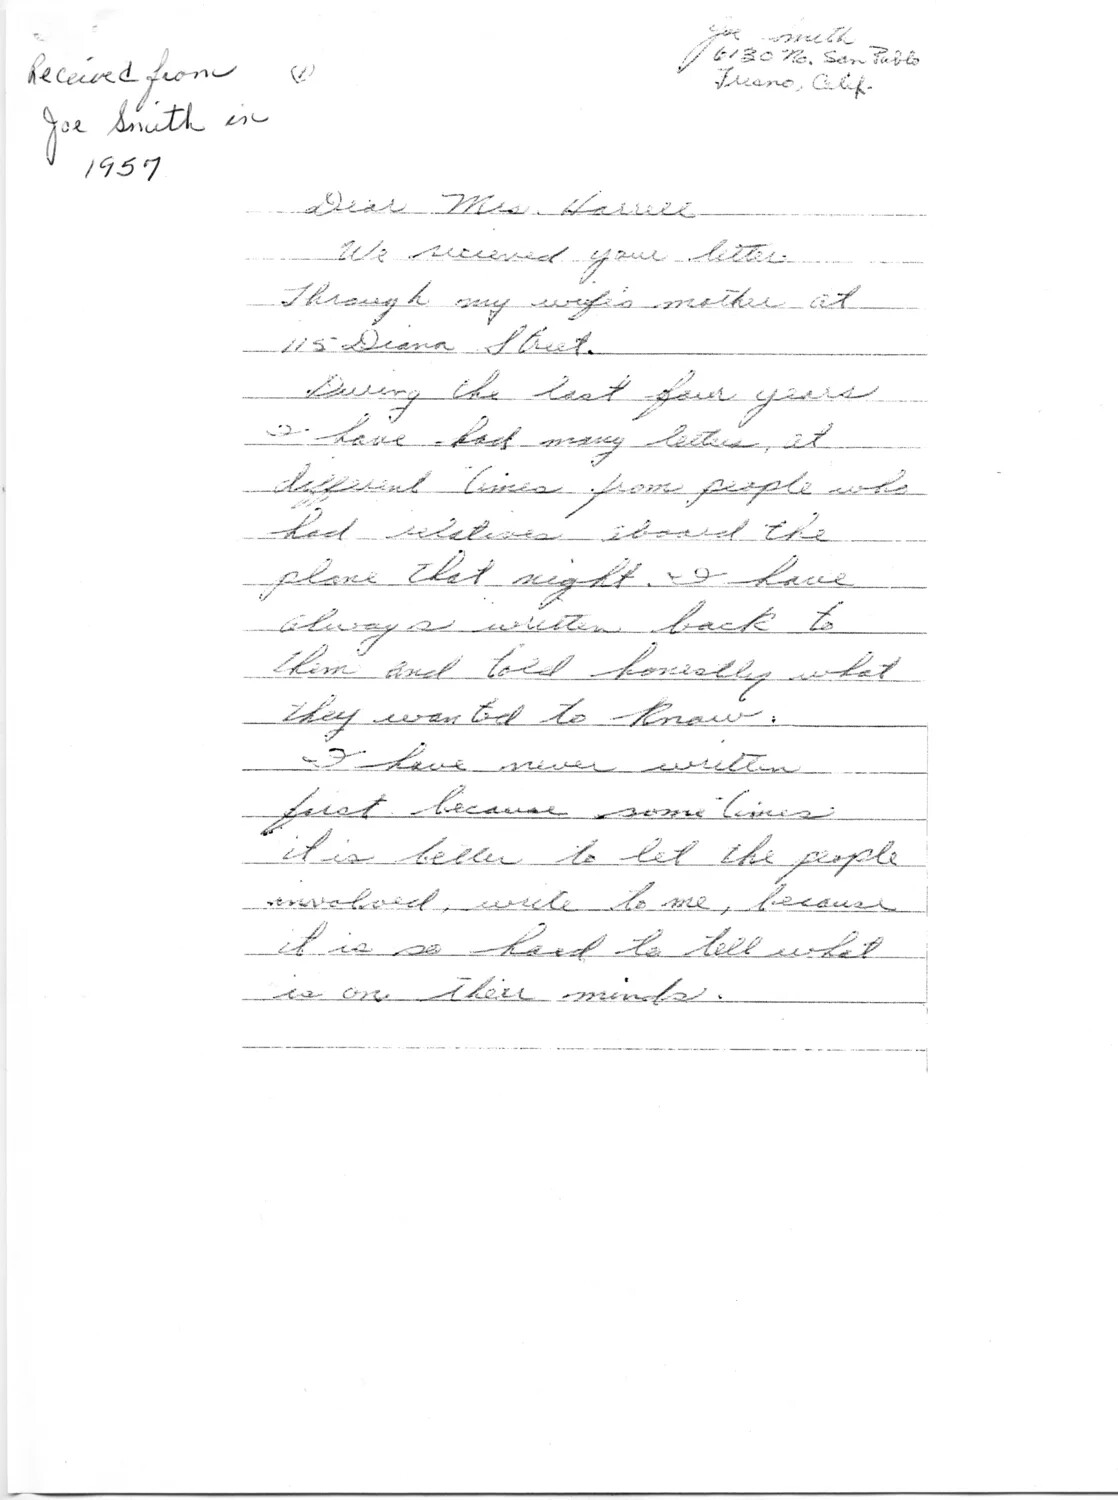 Received from
Joe Smith in
1957
(1)
Joe Smith
6130 No. San Pablo
Fresno, Calif.
Dear Mrs. Harrell
We recieved your letter
Through my wife's mother at
115 Diana Street.
During the last four years
I have had many letters, at
different times from people who
had relatives aboard the
plane that night. I have
always written back to
them and told honestly what
they wanted to know.
I have never written
first because sometimes
it is better to let the people
involved, write to me, because
it is so hard to tell what
is on their minds.